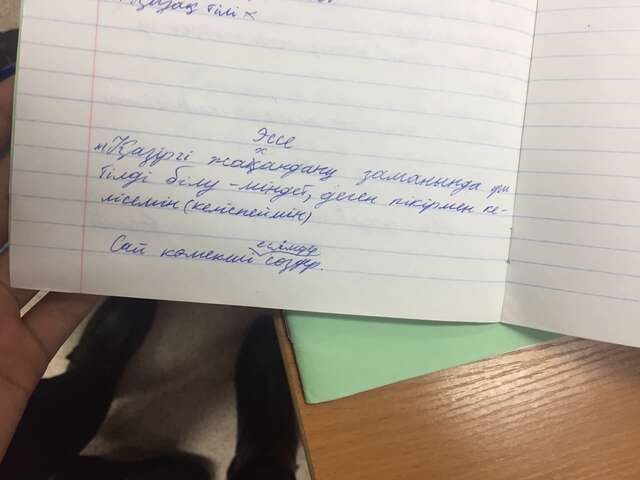 Қазақ тілі
Эссе
"Қазіргі жаһандану заманында үш
тілді білу - міндет, деген пікірмен ке-
лісемін (келіспеймін)
Сай көмекші есімдер
сөздер.